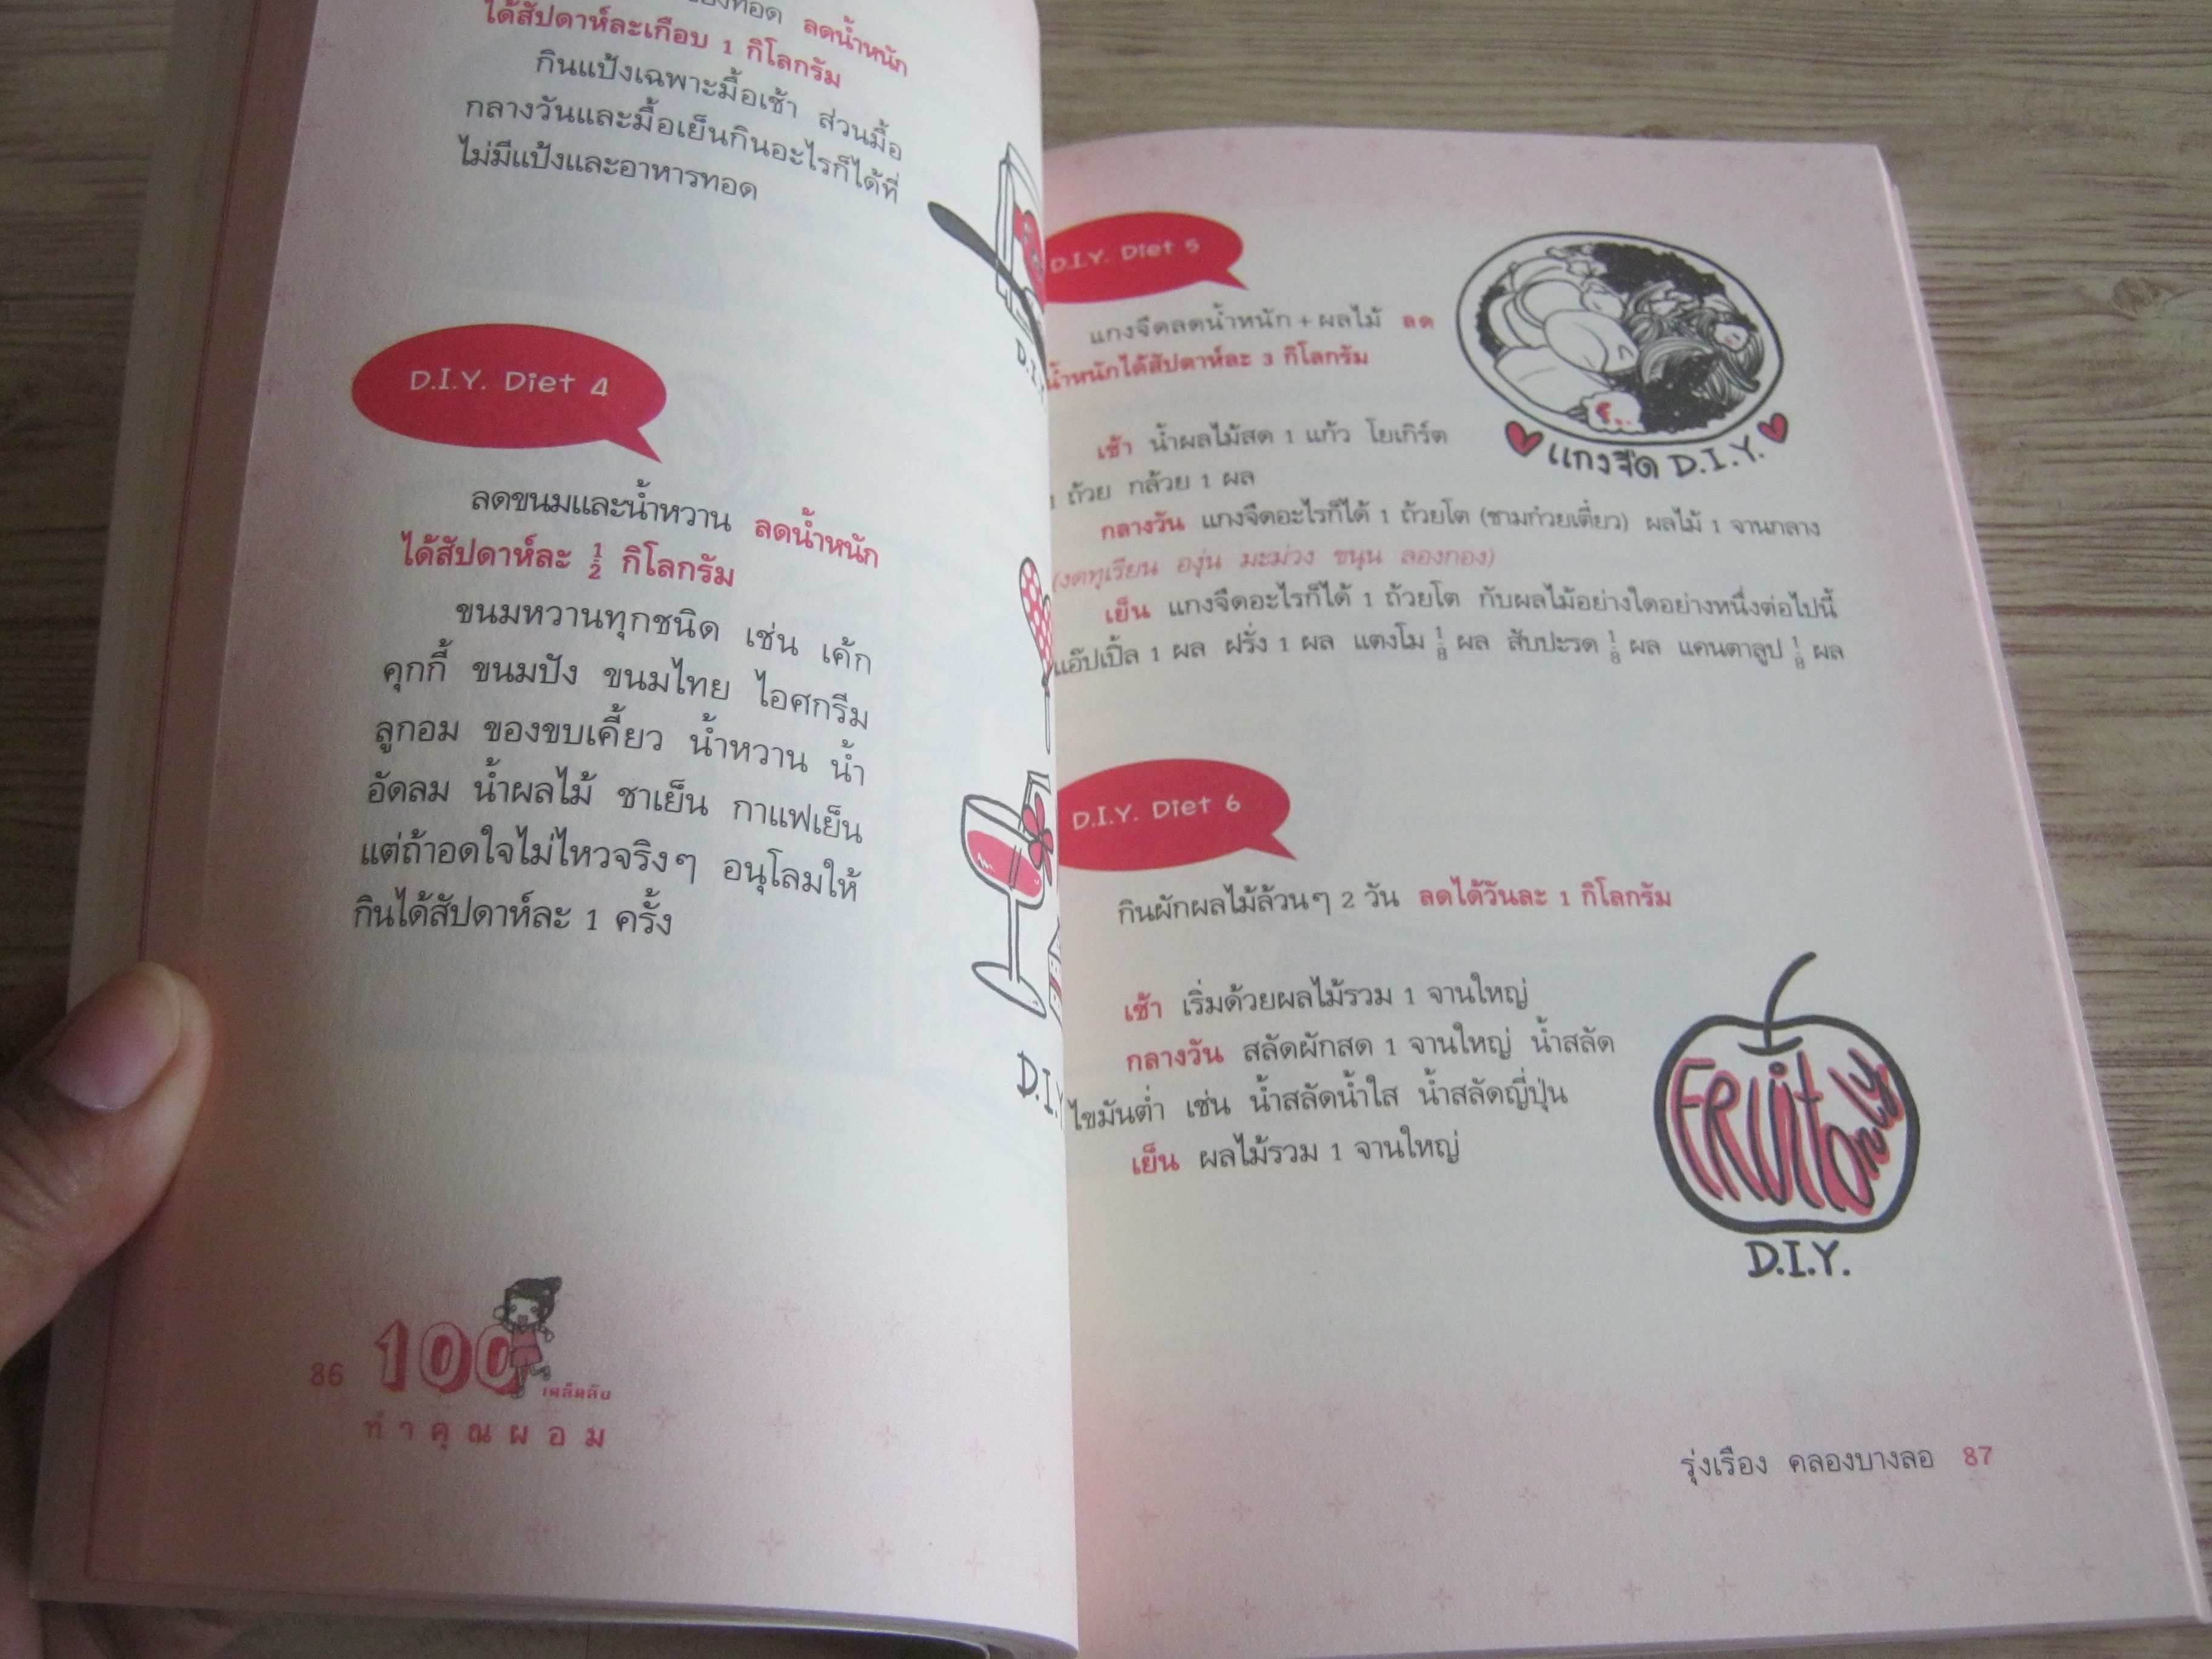 ลดน้ำหนัก
ได้สัปดาห์ละเกือบ 1 กิโลกรัม
กินแป้งเฉพาะมื้อเช้า ส่วนมื้อ
กลางวันและมื้อเย็นกินอะไรก็ได้ที่
ไม่มีแป้งและอาหารทอด
D.I.Y. Diet 4
ลดขนมและน้ำหวาน ลดน้ำหนัก
ได้สัปดาห์ละ ½ กิโลกรัม
ขนมหวานทุกชนิด เช่น เค้ก
คุกกี้ ขนมปัง ขนมไทย ไอศกรีม
ลูกอม ของขบเคี้ยว น้ำหวาน น้ำ
อัดลม น้ำผลไม้ ชาเย็น กาแฟเย็น
แต่ถ้าอดใจไม่ไหวจริงๆ อนุโลมให้
กินได้สัปดาห์ละ 1 ครั้ง
D.I.Y
86 100 เคล็ดลับ
ทำคุณผอม
D.I.Y. Diet 5
แกงจืดลดน้ำหนัก + ผลไม้ ลด
น้ำหนักได้สัปดาห์ละ 3 กิโลกรัม
แกงจืด D.I.Y.
เช้า น้ำผลไม้สด 1 แก้ว โยเกิร์ต
1 ถ้วย กล้วย 1 ผล
กลางวัน แกงจืดอะไรก็ได้ 1 ถ้วยโต (ชามก๋วยเตี๋ยว) ผลไม้ 1 จานกลาง
(งดทุเรียน องุ่น มะม่วง ขนุน ลองกอง)
เย็น แกงจืดอะไรก็ได้ 1 ถ้วยโต กับผลไม้อย่างใดอย่างหนึ่งต่อไปนี้
แอ๊ปเปิ้ล 1 ผล ฝรั่ง 1 ผล แตงโม ⅛ ผล สับปะรด ⅛ ผล แคนตาลูป ⅛ ผล
D.I.Y. Diet 6
กินผักผลไม้ล้วนๆ 2 วัน ลดได้วันละ 1 กิโลกรัม
เช้า เริ่มด้วยผลไม้รวม 1 จานใหญ่
กลางวัน สลัดผักสด 1 จานใหญ่ น้ำสลัด
ไขมันต่ำ เช่น น้ำสลัดน้ำใส น้ำสลัดญี่ปุ่น
เย็น ผลไม้รวม 1 จานใหญ่
FRUiT ONLY
D.I.Y.
รุ่งเรือง คลองบางลอ 87